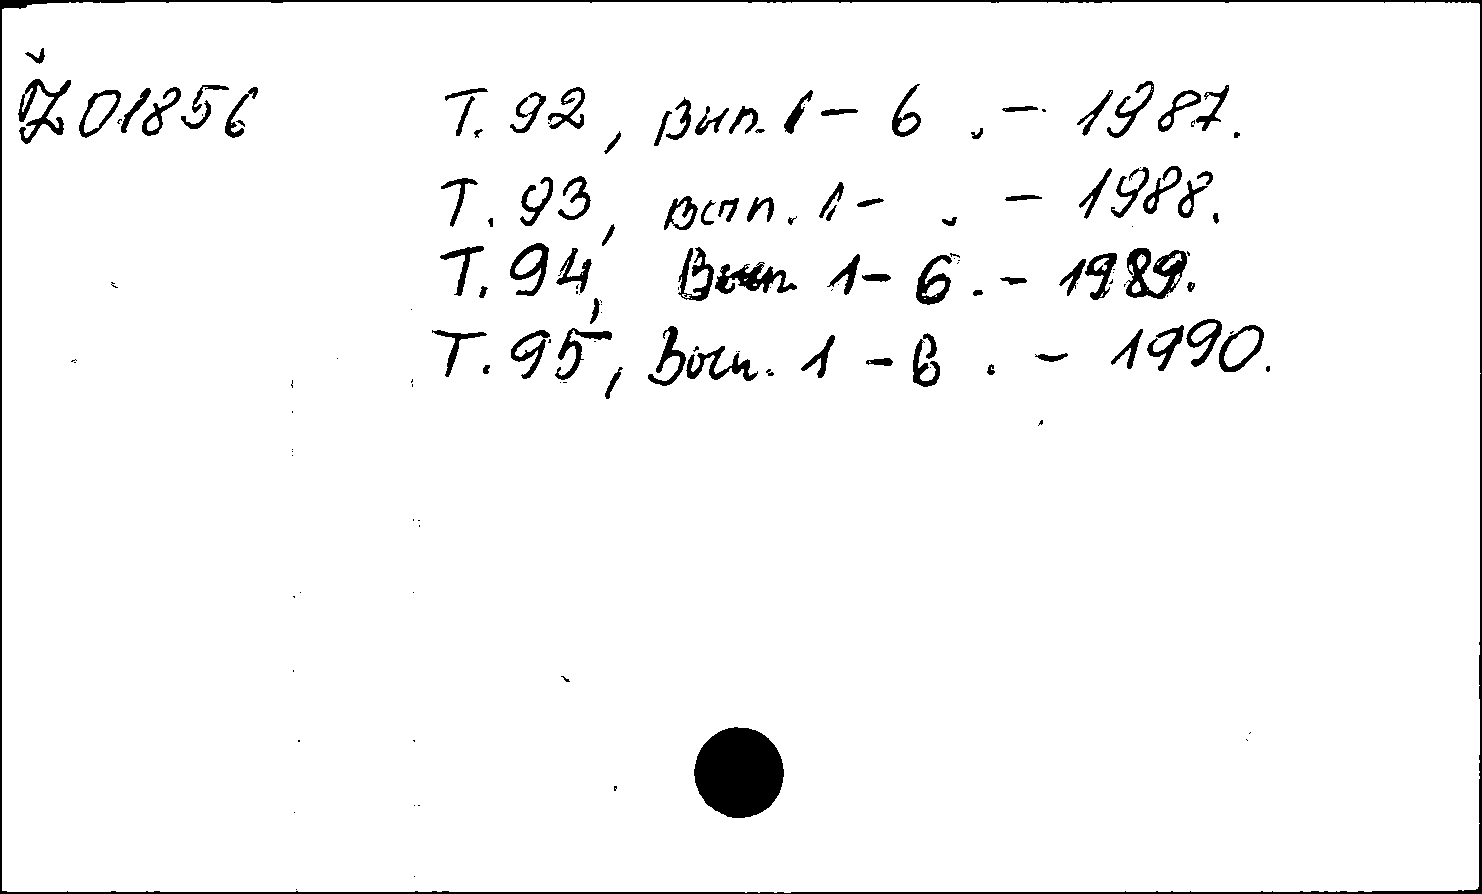 Ž01856 Т. 92, вып. 1 - 6. - 1987.
Т. 93, вып. 1 - . - 1988.
Т. 94, Вып. 1 - 6. - 1989.
Т. 95, Вып. 1 - 6. - 1990.